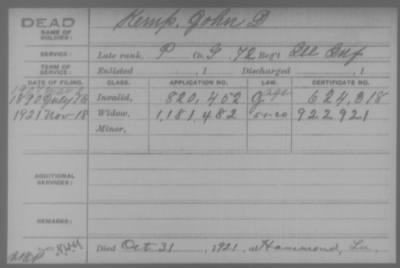 DEAD
NAME OF SOLDIER:
Kemp, John D
SERVICE:
Late rank, P Co. G, 72 Reg't Ill Inf
TERM OF SERVICE:
Enlisted , 1 Discharged , 1
DATE OF FILING. CLASS. APPLICATION NO. LAW. CERTIFICATE NO.
1890 July 26 Invalid, 820,452 G 624,318
1921 Nov 18 Widow, 1,181,482 922921
Minor,
ADDITIONAL SERVICES:
REMARKS:
Died Oct 31, 1921, at Hammond, La.